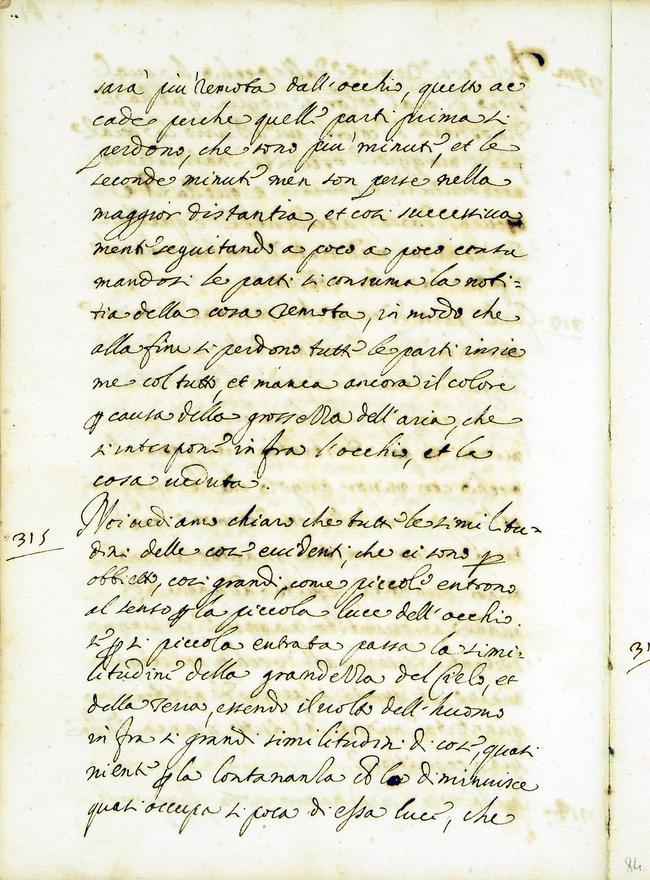 sarà più remota dall'occhio, questo ac
cade perche quelle parti prima si
perdono, che sono più minute, et le
seconde minute men son perse nella
maggior distantia, et così successiva
mente seguitando a poco a poco consu
mandosi le parti si consuma la noti=
tia della cosa remota, in modo che
alla fine si perdono tutte le parti insie
me col tutto, et manca ancora il colore
ꝑ causa della grossezza dell'aria, che
s'interpone infra l'occhio, et la
cosa veduta.
315
Noi vediamo chiaro che tutte le similitu=
dini delle cose evidenti, che ci sono ꝑ
obbietto, così grandi, come piccole entrono
al senso ꝑ la piccola luce dell'occhio.
se ꝑ si piccola entrata passa la simi=
litudine della grandezza del Cielo, et
della terra, essendo il volto dell'huomo
infra si grandi similitudini di cose, quasi
niente ꝑ la lontananza che lo diminuisce
quasi occupa si poca di essa luce, che
84